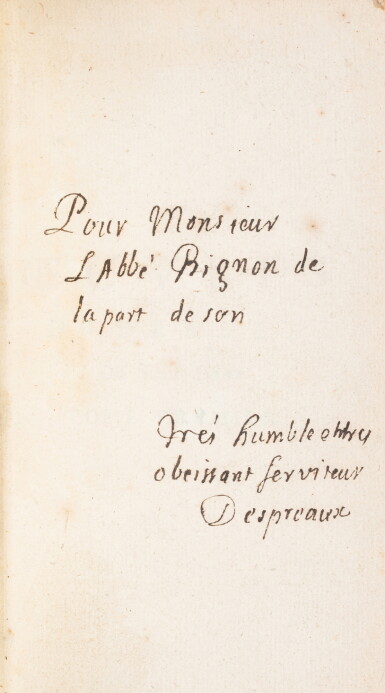 Pour Monsieur
L'Abbé Bignon de
la part de son
trés humble et trés
obeissant serviteur
Despreaux